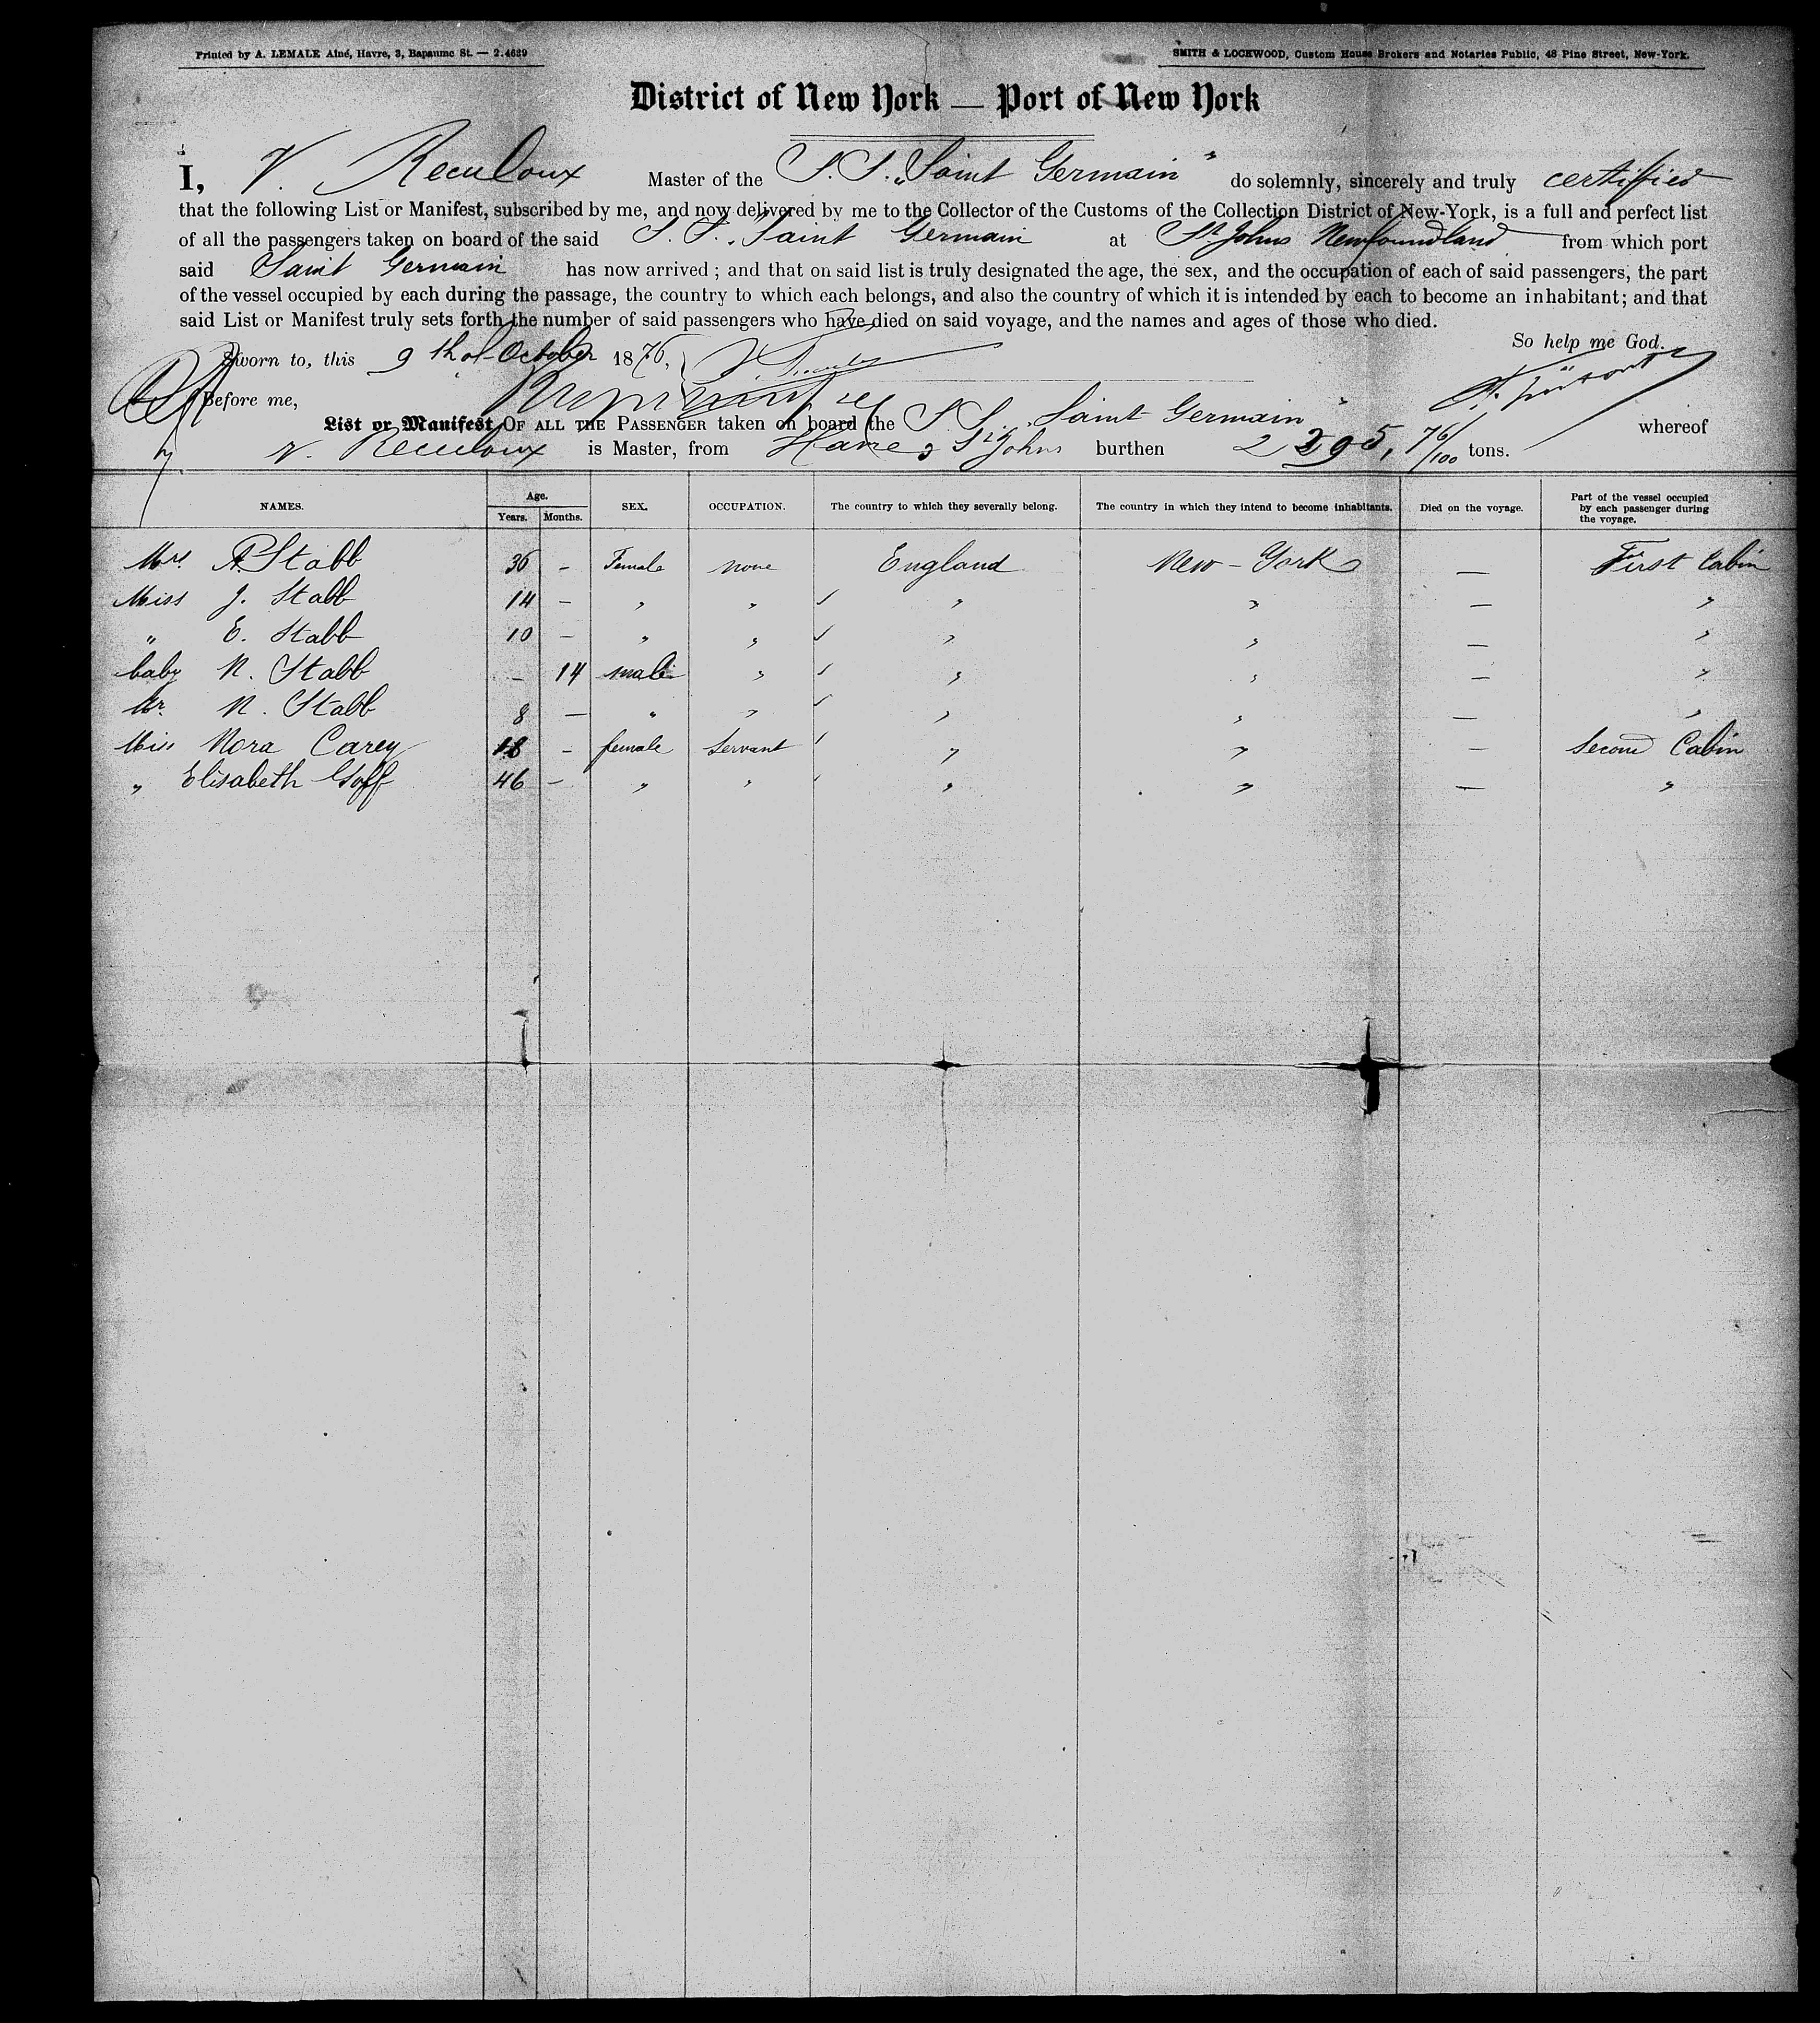 Printed by A. LEMALE Aîné, Havre, 3, Bapaume St. — 2.4629
SMITH & LOCKWOOD, Custom House Brokers and Notaries Public, 48 Pine Street, New-York.
District of New York — Port of New York
I, V. Reculoux Master of the S.S. „Saint Germain" do solemnly, sincerely and truly certified
that the following List or Manifest, subscribed by me, and now delivered by me to the Collector of the Customs of the Collection District of New-York, is a full and perfect list
of all the passengers taken on board of the said S.S. „Saint Germain at St Johns Newfoundland from which port
said Saint Germain has now arrived ; and that on said list is truly designated the age, the sex, and the occupation of each of said passengers, the part
of the vessel occupied by each during the passage, the country to which each belongs, and also the country of which it is intended by each to become an inhabitant; and that
said List or Manifest truly sets forth the number of said passengers who have died on said voyage, and the names and ages of those who died.
So help me God.
Sworn to, this 9 th of October 1876,
Before me,
List or Manifest OF ALL THE PASSENGER taken on board the S.S. „Saint Germain" whereof
V. Reculoux is Master, from Havre & St Johns burthen 2 295, 76/100 tons.
NAMES. Age. Years. Months. SEX. OCCUPATION. The country to which they severally belong. The country in which they intend to become inhabitants. Died on the voyage. Part of the vessel occupied by each passenger during the voyage.
Mrs. A. Stabb 36 - Female none England New-York — First Cabin
Miss J. Stabb 14 - " " " " — "
" E. Stabb 10 - " " " " — "
baby N. Stabb - 14 male " " " — "
Mr. N. Stabb 8 — " " " " — "
Miss Nora Carey 18 - female Servant " " — Second Cabin
" Elisabeth Goff 46 - " " " " — "